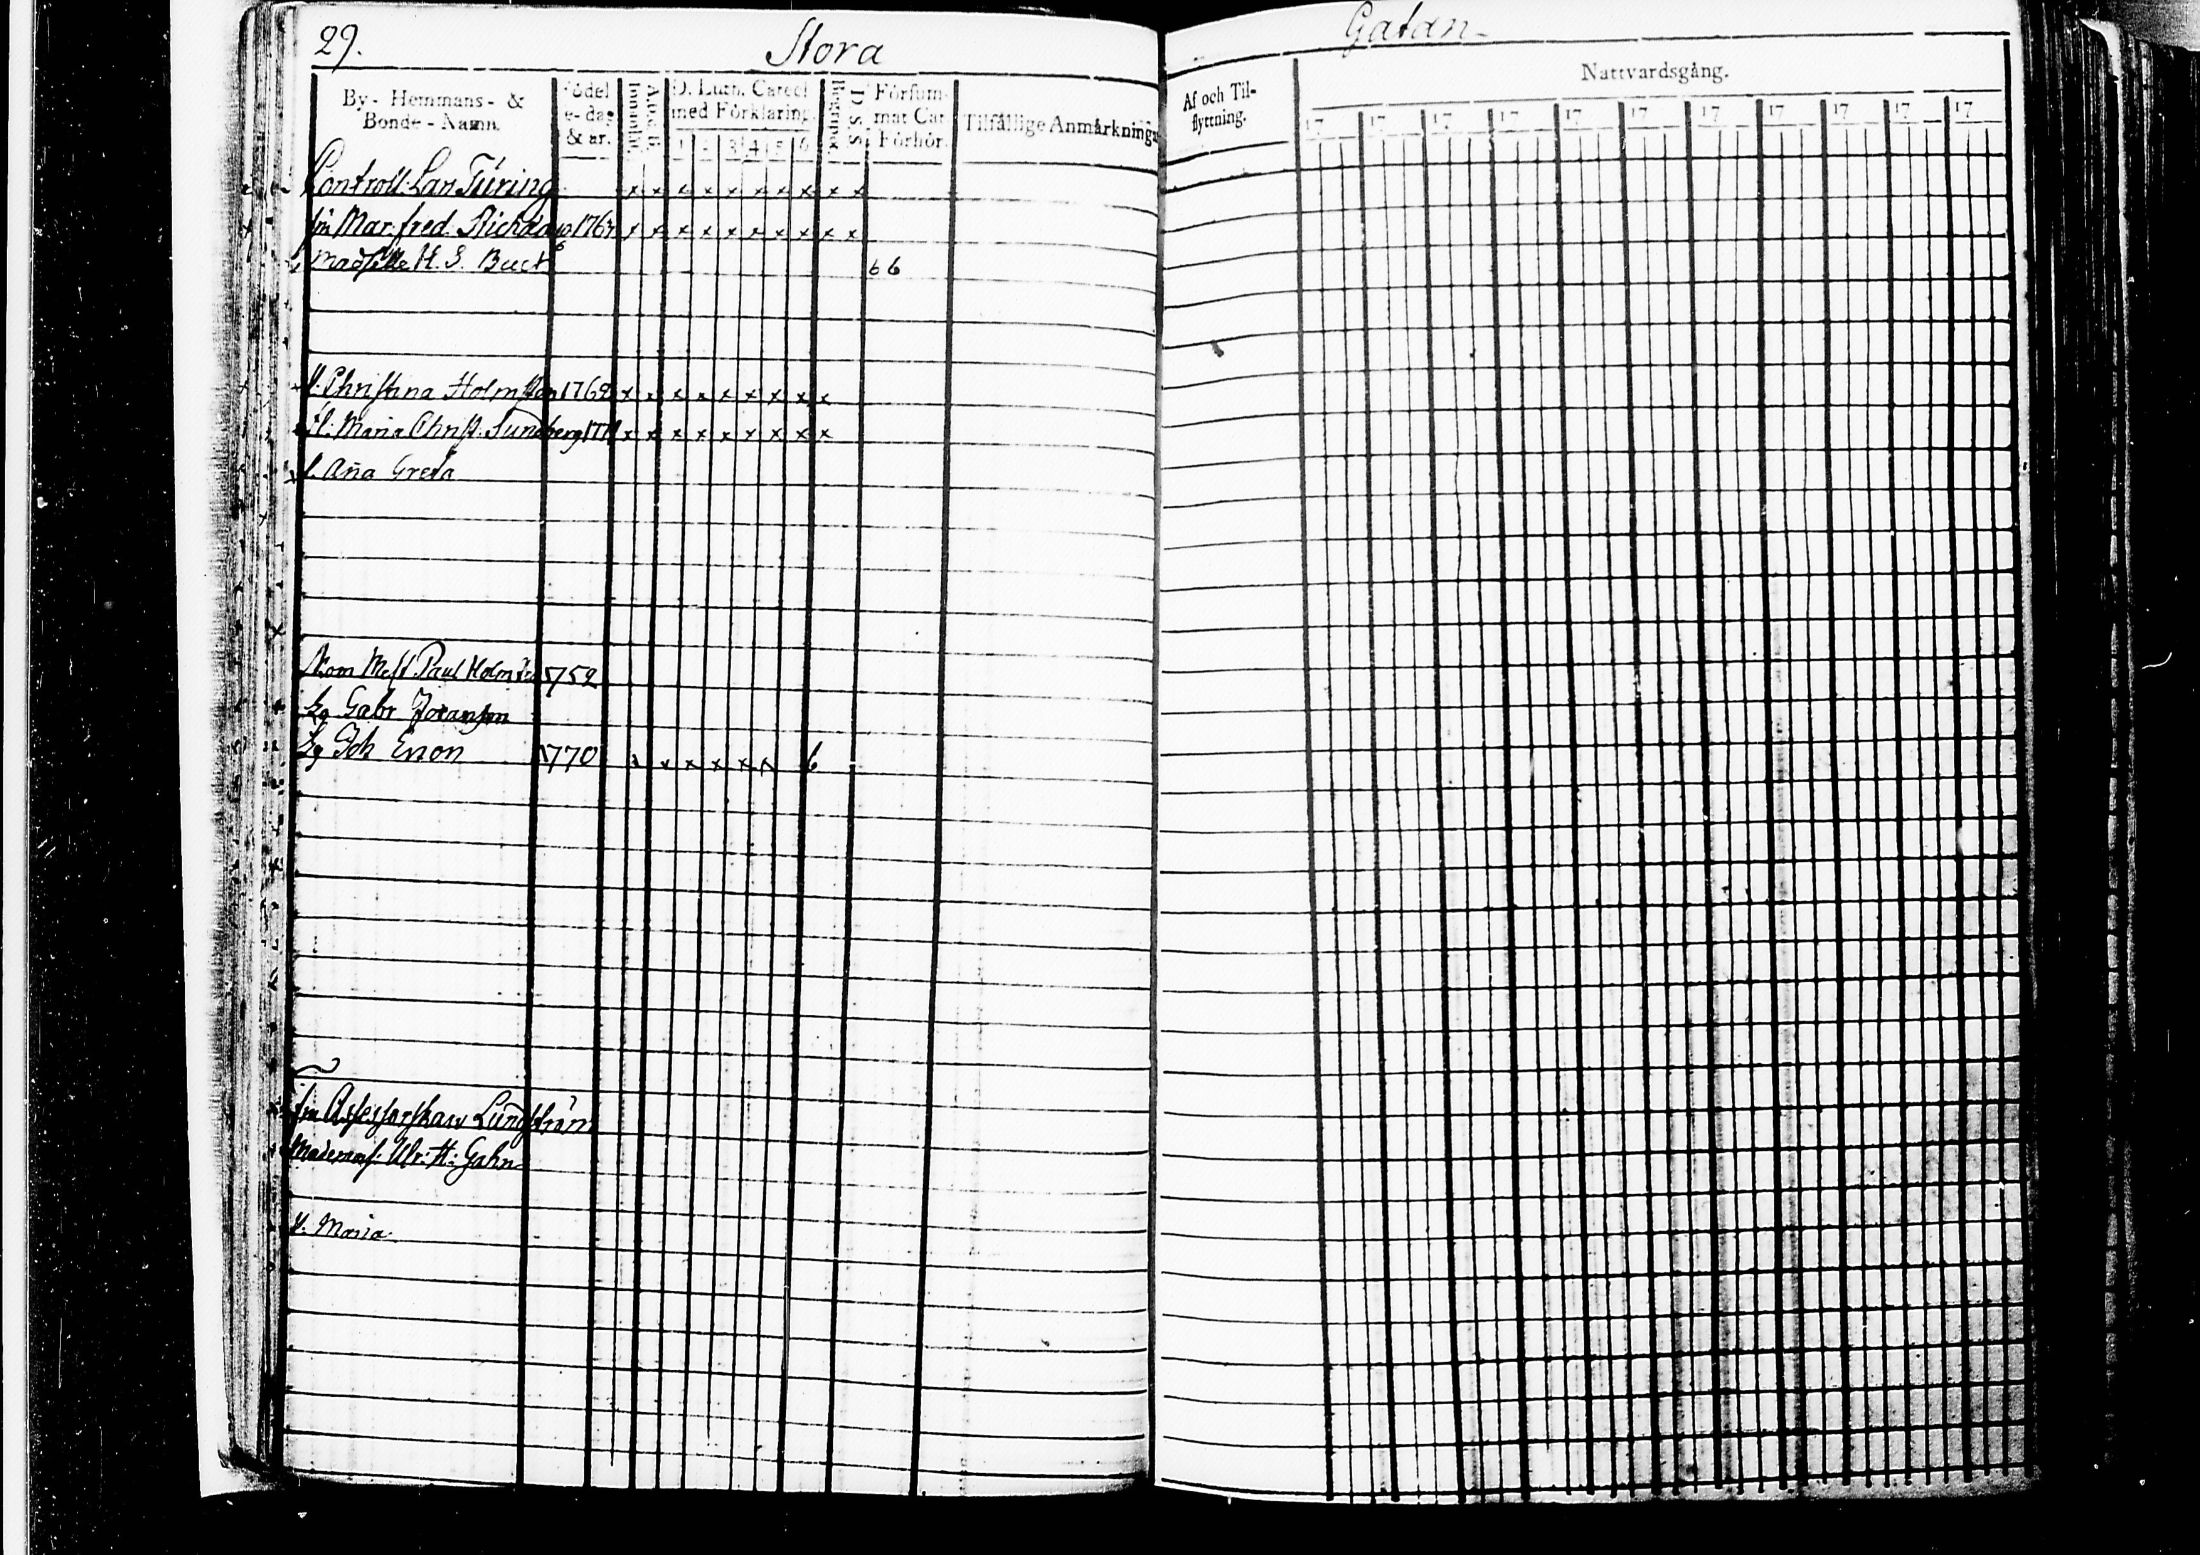 29. Stora Gatan
By- Hemmans- &
Bonde-Namn.
Födel
e-dag
& år.
Innanläs.
D. Luth. Catech.
med Förklaring.
1 2 3 4 5 6
Begrepp.
D. S. S.
Försum-
mat Cat.
Förhör.
Tilfällige Anmärkninga
Af och Til-
flyttning.
Nattvardsgång.
17 17 17 17 17 17 17 17 17 17
Controll: Lars Türing x x x x x x x x x x
fru Mar: fred. 1767 x x x x x x x x x x
Madselle H. S. Buck 6 6
P. Christina Holmsten 1762 x x x x x x x x x
P: Maria Christ. Sundberg x x x x x x x x x
P. Aña Greta
Skom Mest Paul Holmste 1752
Lg Gabr Joransson
Lg Joh Erson 1770 x x x x x x 6
fru Assessorskan Lundström
Mademois: Ulr: H: Gahn
P. Maria